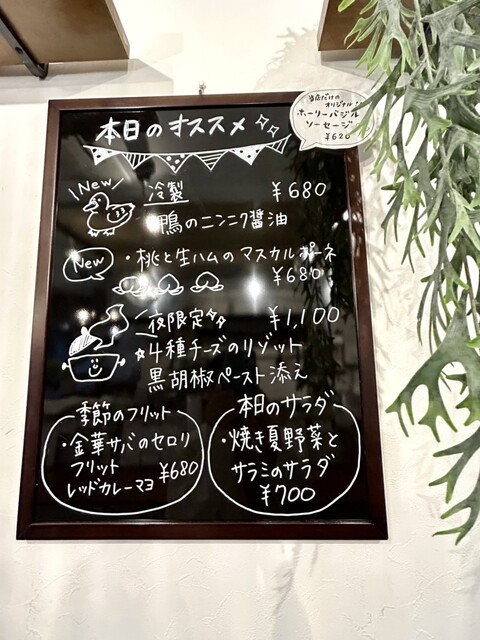 本日のオススメ
当店だけの
オリジナル!
ホーリーバジル
ソーセージ
¥620
New
冷製
¥680
・鴨のニンニク醤油
New
・桃と生ハムのマスカルポーネ
¥680
夜限定
¥1,100
☆4種チーズのリゾット
黒胡椒ペースト添え
季節のフリット
・金華サバのセロリ
フリット
¥680
レッドカレーマヨ
本日のサラダ
・焼き夏野菜と
サラミのサラダ
¥700